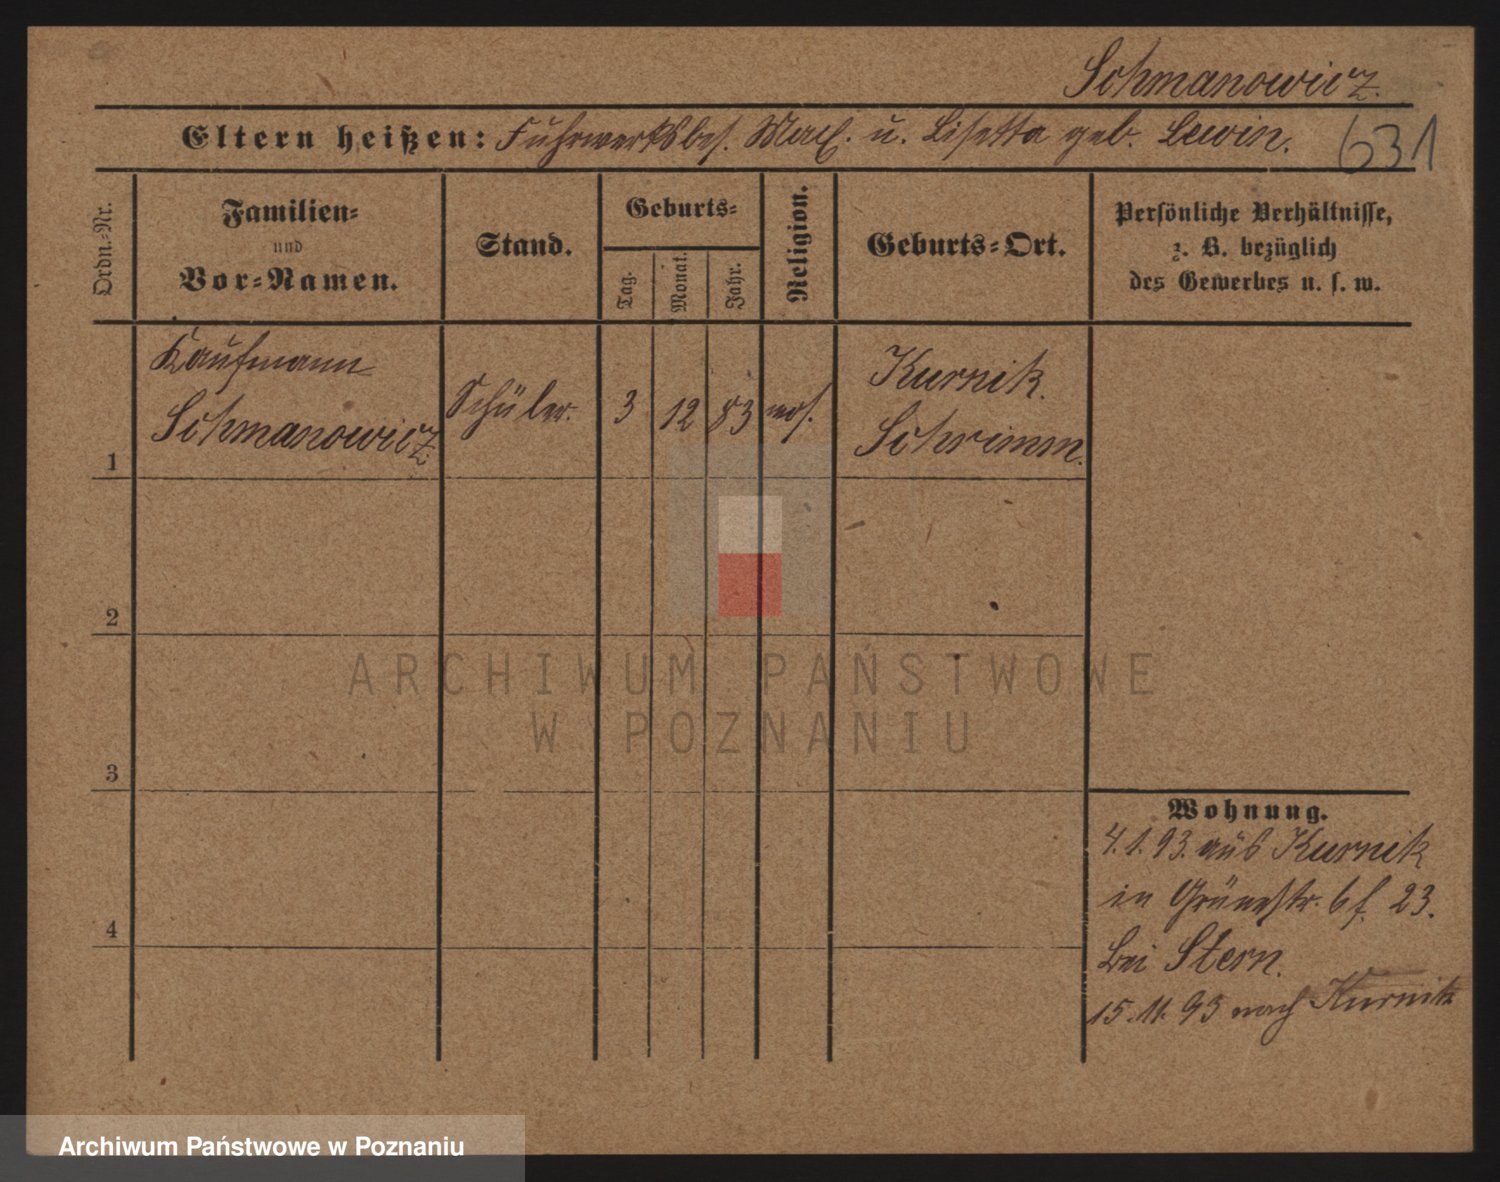 Schmanowicz.
Eltern heißen: Fuhrwerksbes. Marc. u. Lisetta geb. Lewin. 631
Ordn.-Nr.
Familien-
und
Vor-Namen.
Stand.
Geburts-
Tag.
Monat.
Jahr.
Religion.
Geburts-Ort.
Persönliche Verhältnisse,
z. B. bezüglich
des Gewerbes u. s. w.
1
Kaufmann
Schmanowicz
Schüler.
3
12
83
mos.
Kurnik.
Schrimm.
2
3
4
Wohnung.
4.1.93. aus Kurnik
in Grünestr. 6 f. 23.
bei Stern.
15.11.93 nach Kurnik
ARCHIWUM PAŃSTWOWE
W POZNANIU
Archiwum Państwowe w Poznaniu